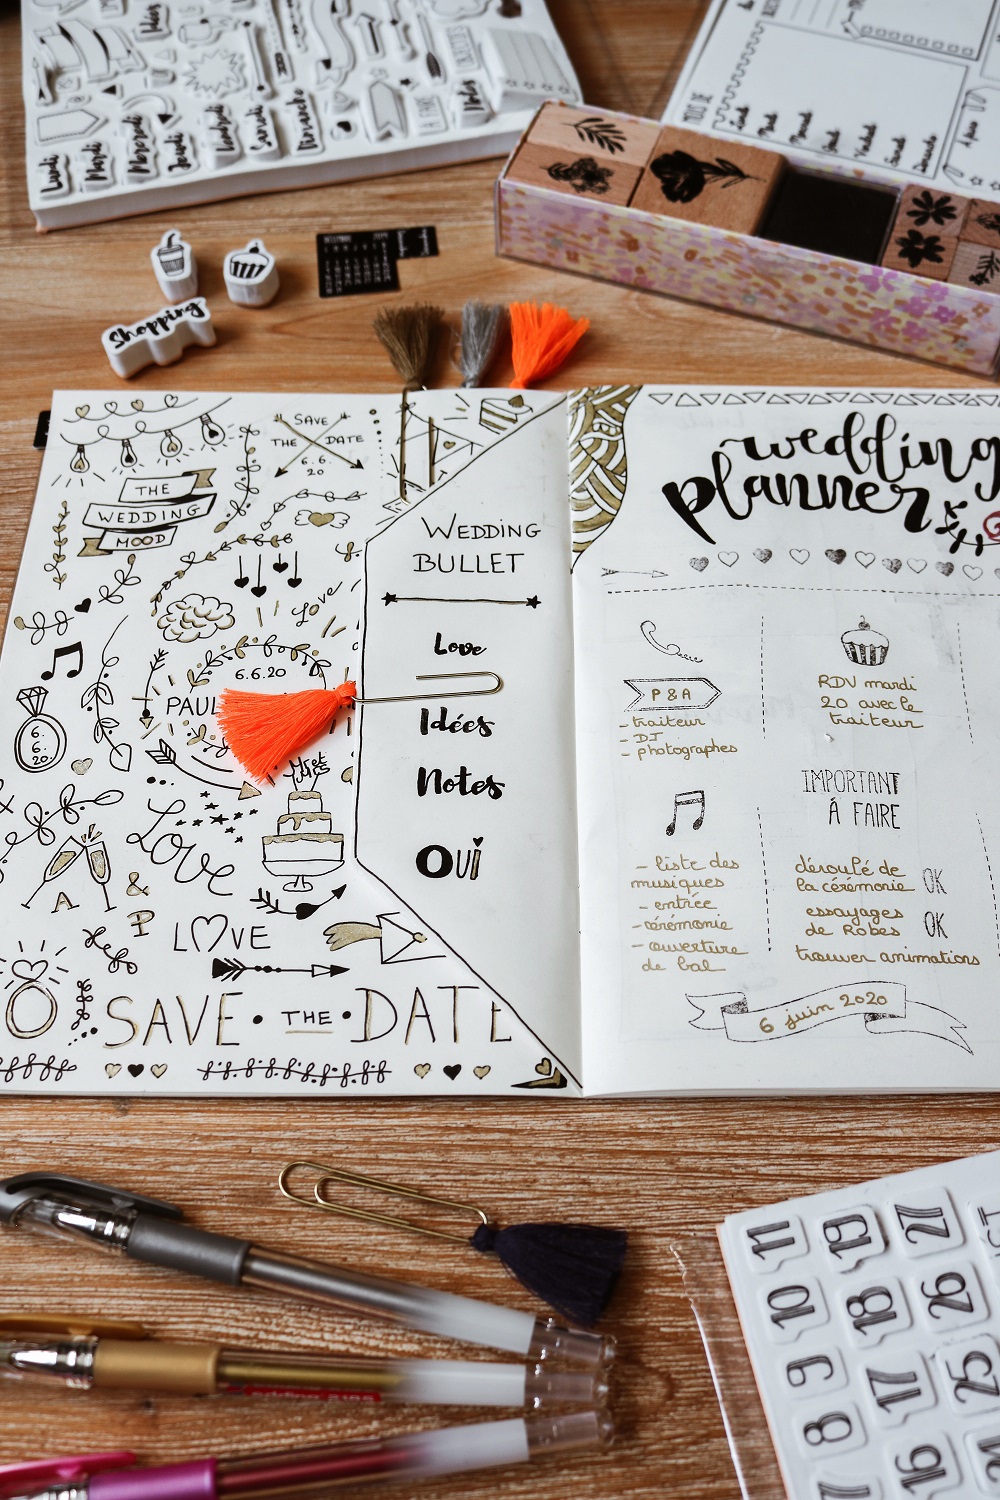 Lundi
Mardi
Mercredi
Jeudi
Vendredi
Samedi
Dimanche
Idées
Notes
À FAIRE
Lundi
Mardi
Mercredi
Jeudi
Vendredi
Samedi
Dimanche
Shopping
SAVE
THE DATE
6.6.
20
THE
WEDDING
MOOD
Love
6.6.20
PAUL
6.
6.
20.
Love
A
&
P
LOVE
SAVE • THE • DATE
WEDDING
BULLET
Love
Idées
Notes
OUi
wedding
planner
P & A
- traiteur
- DJ
- photographes
RDV mardi
20 avec le
traiteur
- liste des
musiques
- entrée
- cérémonie
- ouverture
de bal
IMPORTANT
À FAIRE
déroulé de
la cérémonie OK
essayages
de Robes OK
trouver animations
6 juin 2020
11 19 27
10 18 26
9 17 25
8 16